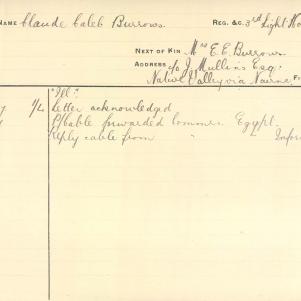 NAME Claude Caleb Burrows. REG. &C. 3rd Light Ho
NEXT OF KIN Mrs E. E. Burrows
ADDRESS c/o J. Mullins Esq.
Native Valley via Nairne.
1/4 Letter acknowledged
P/Cable forwarded Commen Egypt.
Reply cable from " Infor